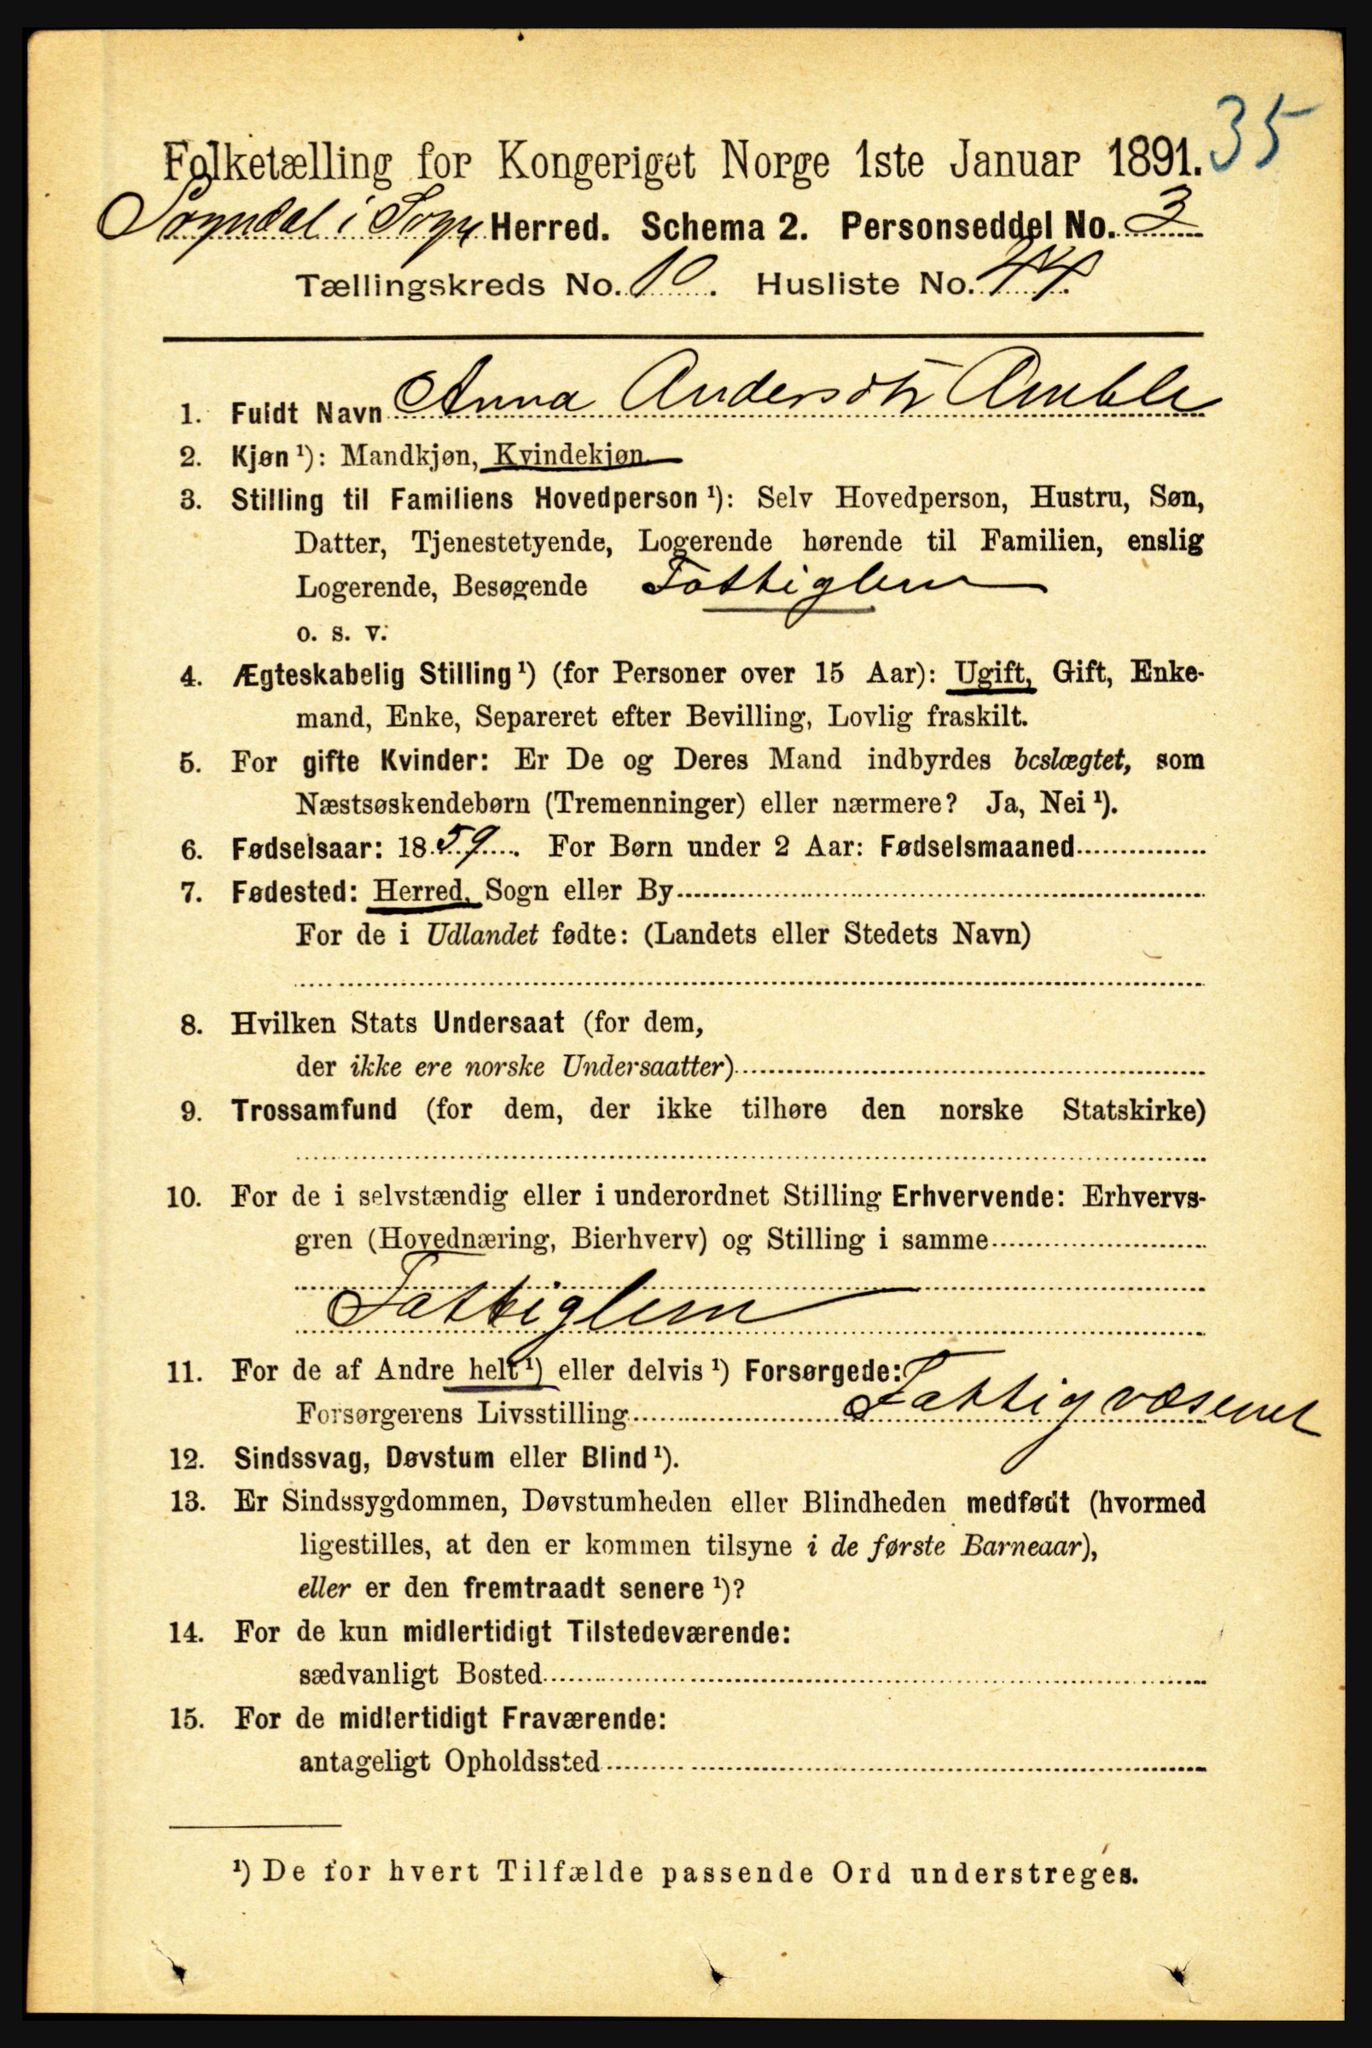 35
Folketælling for Kongeriget Norge 1ste Januar 1891.
Sogndal i Sogn Herred. Schema 2. Personseddel No. 3
Tællingskreds No. 10. Husliste No. 44.
1. Fuldt Navn Anna Andersdtr Amble
2. Kjøn ¹): Mandkjøn, Kvindekjøn
3. Stilling til Familiens Hovedperson ¹): Selv Hovedperson, Hustru, Søn,
Datter, Tjenestetyende, Logerende hørende til Familien, enslig
Logerende, Besøgende Fattiglem
o. s. v.
4. Ægteskabelig Stilling ¹) (for Personer over 15 Aar): Ugift, Gift, Enke-
mand, Enke, Separeret efter Bevilling, Lovlig fraskilt.
5. For gifte Kvinder: Er De og Deres Mand indbyrdes beslægtet, som
Næstsøskendebørn (Tremenninger) eller nærmere? Ja, Nei ¹).
6. Fødselsaar: 1859. For Børn under 2 Aar: Fødselsmaaned
7. Fødested: Herred, Sogn eller By
For de i Udlandet fødte: (Landets eller Stedets Navn)
8. Hvilken Stats Undersaat (for dem,
der ikke ere norske Undersaatter)
9. Trossamfund (for dem, der ikke tilhøre den norske Statskirke)
10. For de i selvstændig eller i underordnet Stilling Erhvervende: Erhvervs-
gren (Hovednæring, Bierhverv) og Stilling i samme
Fattiglem
11. For de af Andre helt ¹) eller delvis ¹) Forsørgede:
Forsørgerens Livsstilling Fattigvæsenet
12. Sindssvag, Døvstum eller Blind ¹).
13. Er Sindssygdommen, Døvstumheden eller Blindheden medfødt (hvormed
ligestilles, at den er kommen tilsyne i de første Barneaar),
eller er den fremtraadt senere ¹)?
14. For de kun midlertidigt Tilstedeværende:
sædvanligt Bosted
15. For de midlertidigt Fraværende:
antageligt Opholdssted
¹) De for hvert Tilfælde passende Ord understreges.